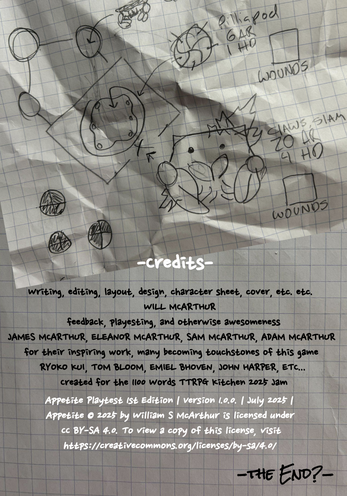 Pillapod
6 AR
1 HD
WOUNDS
CLAWS, SLAM
20 AR
4 HD
WOUNDS
-credits-
writing, editing, layout, design, character sheet, cover, etc. etc.
WILL McARTHUR
feedback, playesting, and otherwise awesomeness
JAMES McARTHUR, ELEANOR McARTHUR, SAM McARTHUR, ADAM McARTHUR
for their inspiring work, many becoming touchstones of this game
RYOKO KUI, TOM BLOOM, EMIEL BHOVEN, JOHN HARPER, ETC...
created for the 1100 Words TTRPG Kitchen 2025 Jam
Appetite Playtest 1st Edition | version 1.0.0. | July 2025 |
Appetite © 2025 by William S McArthur is licensed under
CC BY-SA 4.0. To view a copy of this license, visit
https://creativecommons.org/licenses/by-sa/4.0/
-THE END?-